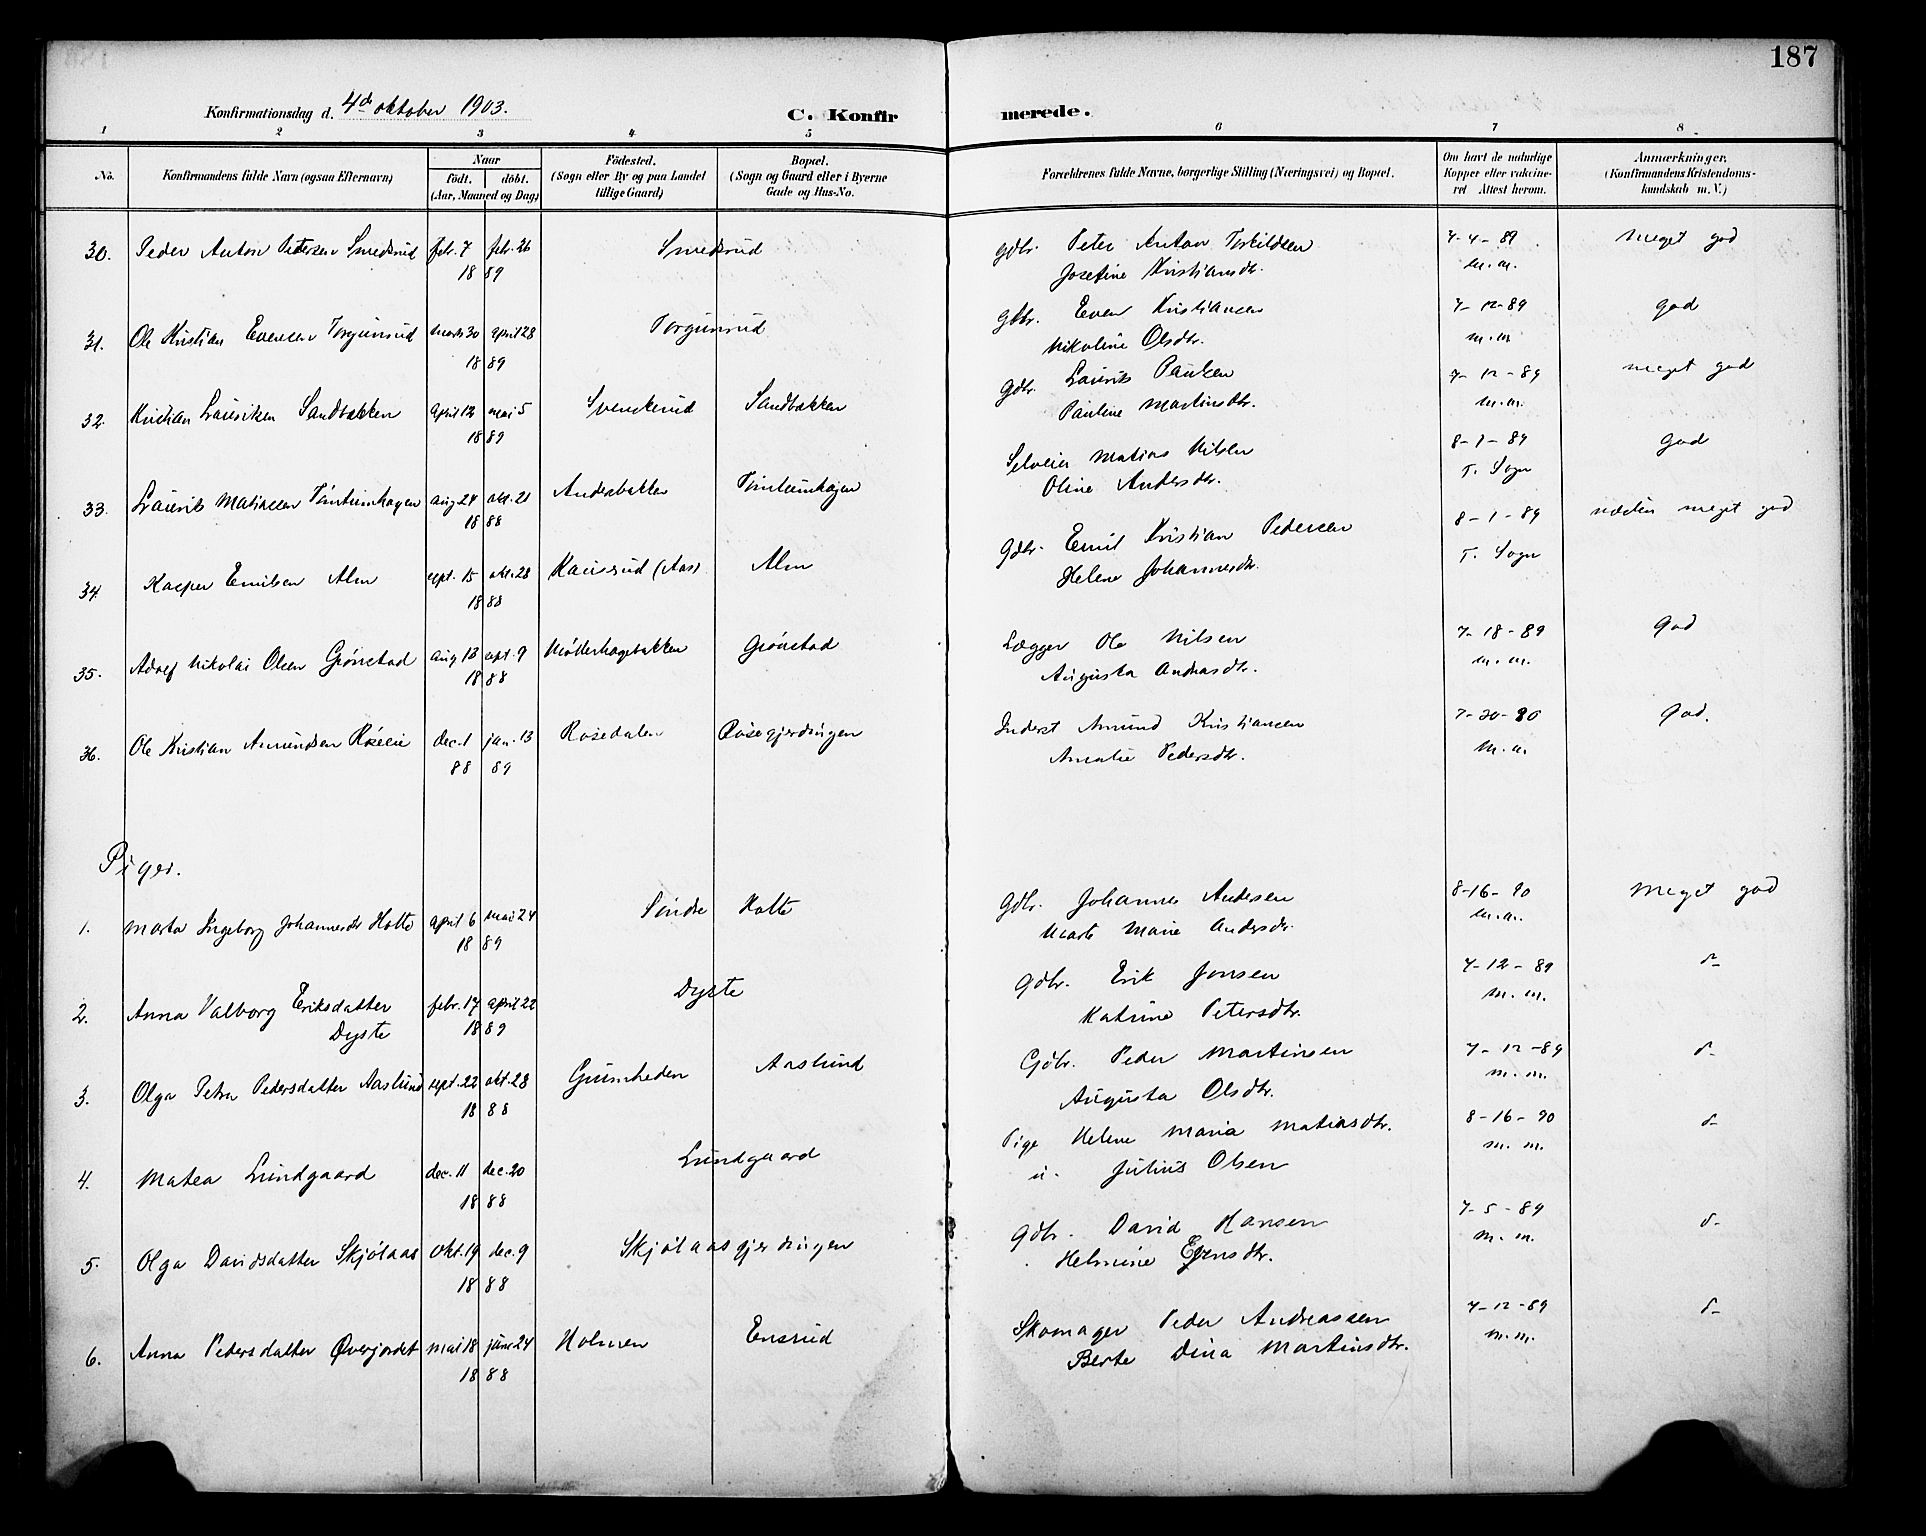 187
Konfirmationsdag d. 4de oktober 1903.
C. Konfirmerede.
1 2 3 4 5 6 7 8
No. Konfirmandens fulde Navn (ogsaa Efternavn) Naar födt. döbt. (Aar, Maaned og Dag) Födested. (Sogn eller By og paa Landet tillige Gaard) Bopæl. (Sogn og Gaard eller i Byerne Gade og Hus-No. Forældrenes fulde Navne, borgerlige Stilling (Næringsvei) og Bopæl. Om havt de naturlige Kopper eller vaccineret Attest herom. Anmærkninger. (Konfirmandens Kristendomskundskab m. V.)
30. Peder Anton Petersen Smedsrud febr. 7 febr. 26 Smedsrud gdbr. Peter Anton Torkildsen 7-4-89 meget god
18 89 Josefine Kristiansdtr. m.a.
31. Ole Kristian Evensen Torgunrud marts 30 april 28 Torgunrud Gdbr. Even Kristiansen 7-12-89 god
18 89 Nikoline Olsdtr. m.m
32. Kristian Lauriksen Sandbakken april 12 mai 5 Svenskerud Sandbakken Gdbr. Laurits Paulsen 7-12-89 meget god
18 89 Pauline Martinsdtr. m.m.
33. Laurits Matiasen Tømtumhagen aug. 24 okt. 21 Andersbakken Tømtumhagen Selveier Matias Nilsen 8-1-89 god
18 88 Oline Andersdtr. T. Sogn
34. Kasper Emilsen Alm sept. 15 okt. 28 Kausrud (Aas) Alm Gdbr. Emil Kristian Pedersen 8-1-89 næsten meget god
18 88 Helene Johannesdtr. T. Sogn
35. Adolf Nikolai Olsen Grönstad aug 13 sept. 9 Möllerhagebakken Grönstad Lægger Ole Nilsen 7-18-89 god
18 88 Augusta Andreasdtr. m.m.
36. Ole Kristian Amundsen Röselie dec. 1 jan. 13 Rosedalen Rosegjerdingen Inderst Amund Kristiansen 7-20-90 god.
88 89 Amalie Pedersdtr. m.a.
Piger.
1. Marta Ingeborg Johannesdtr Hotte april 6 mai 24 Söndre Hotte Gdbr. Johannes Andersen 8-16-90 Meget god
18 89 Marte Marie Andersdtr. m.a.
2. Anna Valborg Eriksdatter febr. 17 april 22 Dyste Gdbr. Erik Jonsen 7-12-89 d-
Dyste 18 89 Katrine Petersdtr. m.m.
3. Olga Petra Pedersdatter Aaslund sept. 22 okt. 28 Grimheden Aaslund Gdbr. Peder Martinsen 7-12-89 d-
18 88 Augusta Olsdtr. m.m.
4. Matea Lundgaard dec. 11 dec. 20 Lundgaard Pige Helene Maria Matiasdtr. 8-16-90 d-
18 88 u. Julius Olsen m.m.
5. Olga Davidsdatter Skjölaas okt. 19 dec. 9 Skjölaasgjerdingen Gdbr. David Hansen 7-5-89 d-
18 88 Helmine m.m.
6. Anna Pedersdatter Øverjordet mai 18 juni 24 Holmen Ensrud Skomager Peder Andreassen 7-12-89 d-
18 88 Berte Dina Martinsdtr. m.m.